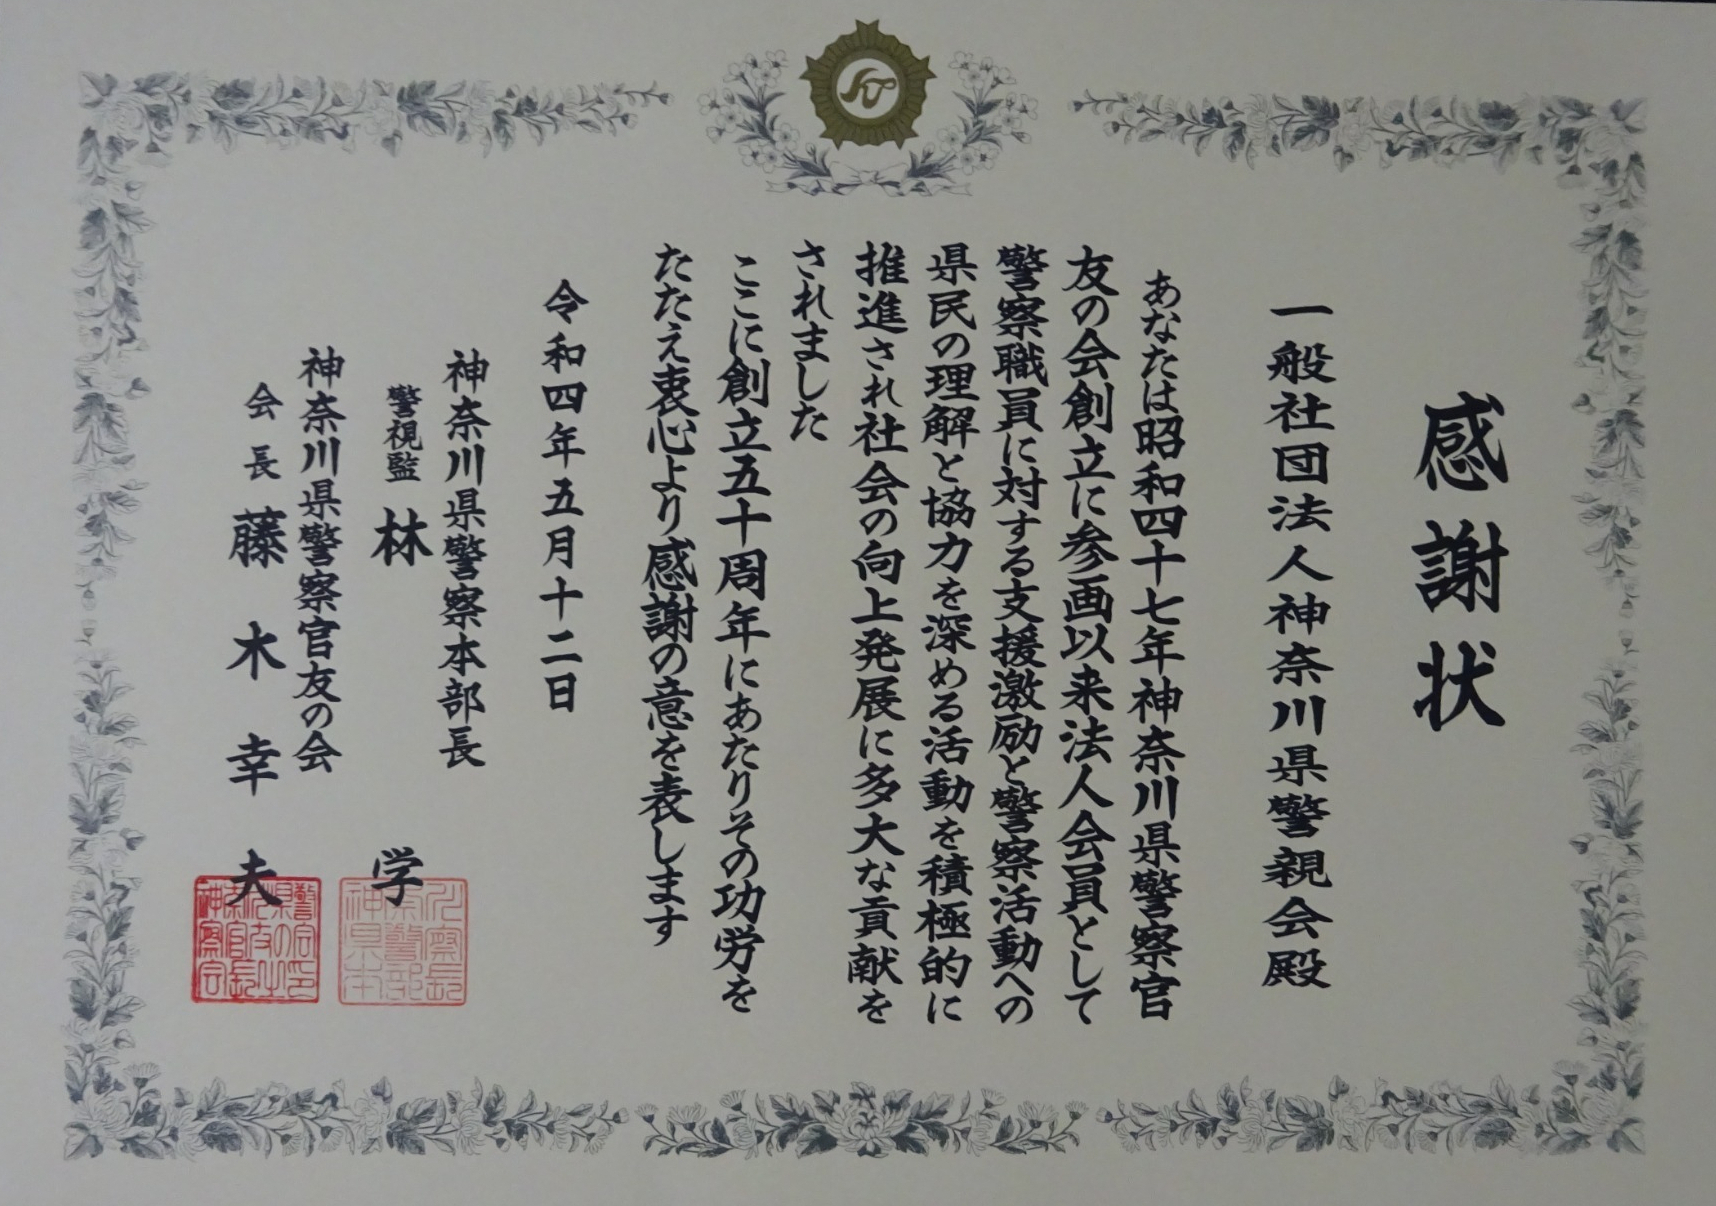 感謝状
一般社団法人神奈川県警親会殿
あなたは昭和四十七年神奈川県警察官
友の会創立に参画以来法人会員として
警察職員に対する支援激励と警察活動への
県民の理解と協力を深める活動を積極的に
推進され社会の向上発展に多大な貢献を
されました
ここに創立五十周年にあたりその功労を
たたえ衷心より感謝の意を表します
令和四年五月十二日
神奈川県警察本部長
警視監 林 学
神奈川県警察官友の会
会長 藤木幸夫